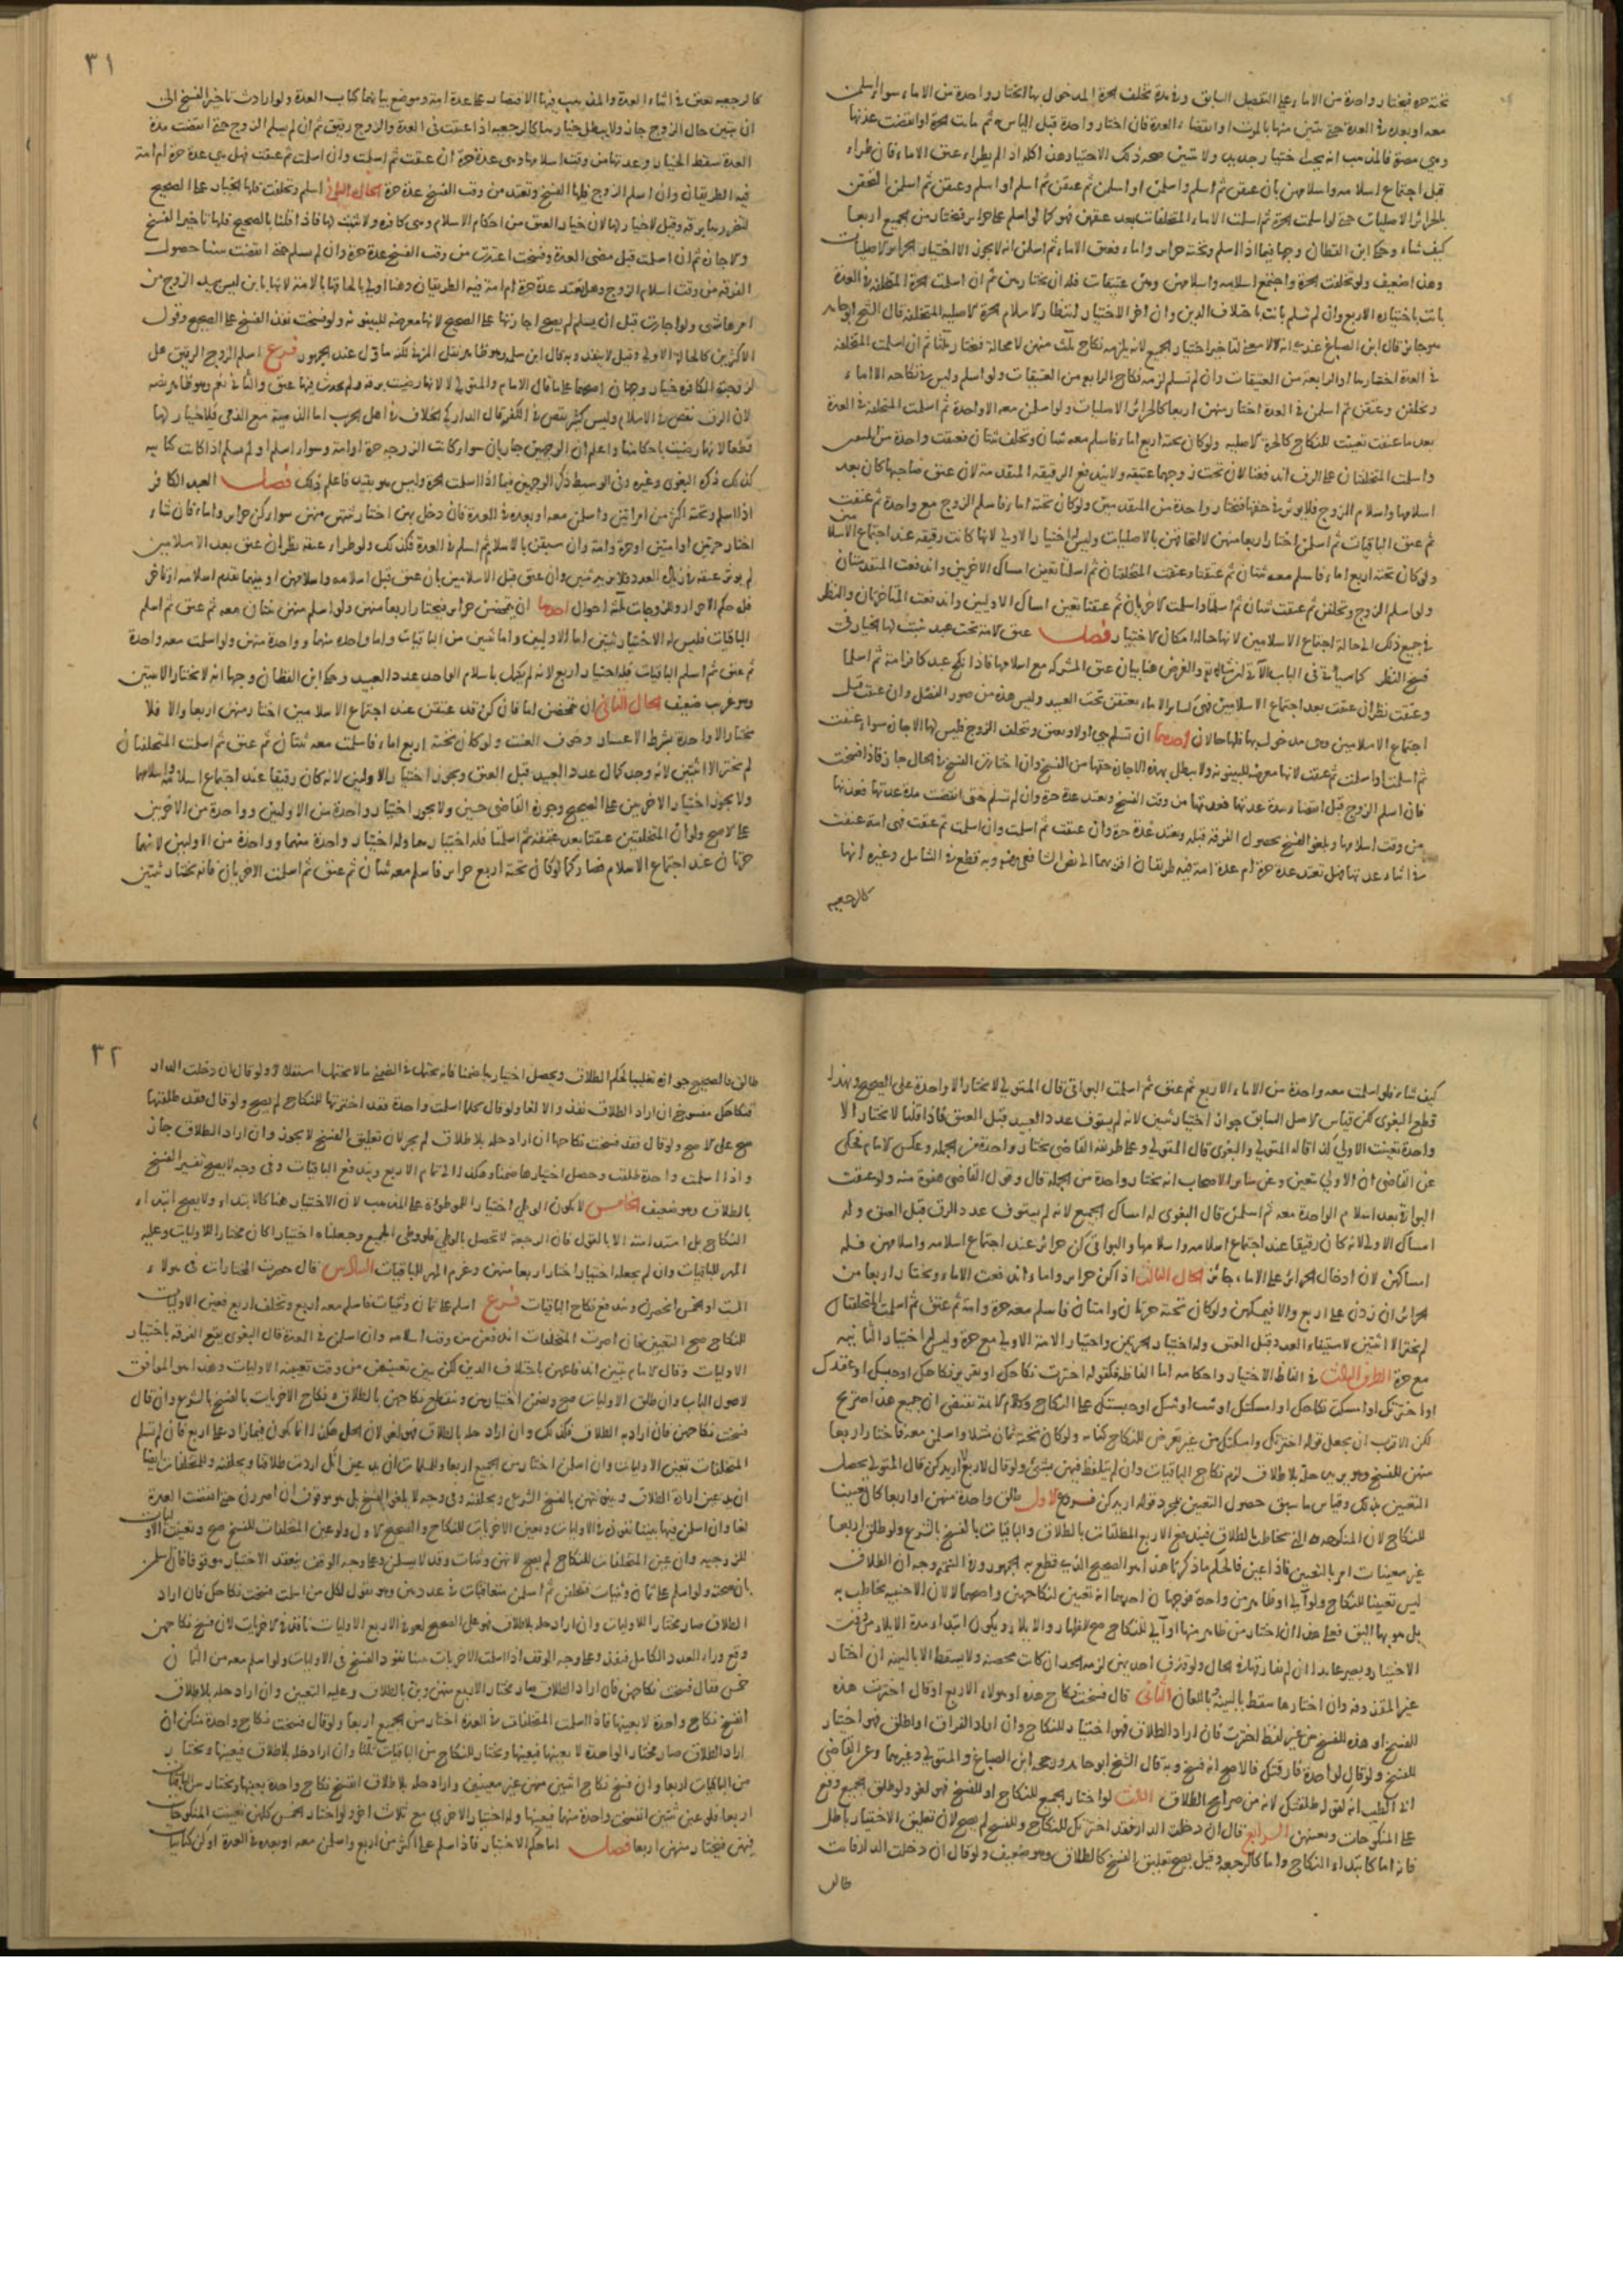 تحته حرة فيختار واحدة من الاماء على التفصيل السابق وفي مدة تخلف الحرة المدخول بها لا يختار واحدة من الاماء سواء اسلمن
معه او بعده في العدة حتى يتبين منها بالموت او انقضاء العدة فان اختار واحدة قبل الياس ثم ماتت الحرة او انقضت عدتها
وهي مصرة فالمذهب انه يجدد اختيارا جديدا ولا نتبين صحة ذلك الاختيار هذا كله اذا لم يطراء عتق الاماء فان طراء
قبل اجتماع اسلامه واسلامهن بان عتقن ثم اسلم واسلمن او اسلمن ثم عتقن ثم اسلم او اسلم وعتقن ثم اسلمن التحقن
بالحرائر الاصليات حتى لو اسلمت الحرة ثم اسلمت الاماء المتخلفات بعد عتقهن فهو كما لو اسلم على حرائر فيختار من الجميع اربعا
كيف شاء وحكى ابن القطان وجها فيما اذا اسلم وتحته حرائر واماء وعتق الاماء ثم اسلمن انه لا يجوز الا اختيار الحرائر الاصليات
وهذا ضعيف ولو تخلفت الحرة واجتمع اسلامه واسلامهن وهن عتيقات فله ان يختارهن ثم ان اسلمت الحرة المتخلفة في العدة
بانت باختياره الاربع وان لم تسلم بانت باختلاف الدين وان اخر الاختيار انتظارا لاسلام الحرة الاصلية المتخلفة قال الشيخ ابو حامد
هو جائز قال ابن الصباغ عندي انه لا معنى لتاخير اختيار الجميع لانه يلزمه نكاح ثلث منهن لا محالة فيختار ثلثا ثم ان اسلمت المتخلفة
في العدة اختارها او الرابعة من العتيقات وان لم تسلم لزمه نكاح الرابع من العتيقات ولو اسلم وليس في نكاحه الا اماء
وتخلفن وعتقن ثم اسلمن في العدة اختار منهن اربعا كالحرائر الاصليات ولو اسلمن معه الا واحدة ثم اسلمت المتخلفة في العدة
بعد ما عتقت تعينت للنكاح كالحرة الاصلية ولو كان تحته اربع اماء فاسلم معه ثنتان وتخلف ثنتان فعتقت واحدة من
واسلمت المتخلفتان على الرق اندفعتا لان تحت زوجها عتيقة ولا يندفع الرقيقة المتقدمة لان عتق صاحبتها كان بعد
اسلامها واسلام الزوج فلا يوثر في حقها فيختار واحدة من المتقدمتين ولو كان تحته اماء فاسلم الزوج مع واحدة ثم عتقت
ثم عتق الباقيات ثم اسلمن اختار اربعا منهن لالتحاقهن بالاصليات وليس له اختيار الاولى لانها كانت رقيقة عند اجتماع الاسلا مين
ولو كان تحته اربع اماء فاسلم معه ثنتان ثم عتقتا وعتقت المتخلفتان ثم اسلمتا تعين امساك الاخريين واندفعت المتقدمتان
ولو اسلم الزوج وتخلفن ثم عتقت ثنتان ثم اسلمتا واسلمت الاخريان ثم عتقتا تعين امساك الاوليين واندفعت المتاخرتان والنظر
في جميع ذلك الى حالة اجتماع الاسلامين لانها حالة امكان الاختيار فصل عتق الامة تحت عبد يثبت لها الخيار في
فسخ النكاح كما سياتي في الباب الآتي ان شاء الله تعالى والغرض هنا بيان عتق المشركة مع اسلامها فاذا نكح عبد كافر امة ثم اسلما
وعتقت نظر ان عتقت بعد اجتماع الاسلامين فهي كسائر الاماء يعتقن تحت العبيد وليس هذه من صور الفصل وان عتقت قبل
اجتماع الاسلامين وهي مدخول بها فلها حالان احدهما ان تسلم هي اولا وتعتق وتخلف الزوج فليس لها الاجازة سواء عتقت
ثم اسلمت او اسلمت ثم عتقت لانها معرضة للبينونة ولا يبطل بهذه الاجازة حقها من الفسخ وان اختارت الفسخ في الحال جاز فاذا فسخت
فان اسلم الزوج قبل انقضاء مدة عدتها فعدتها من وقت الفسخ وتعتد عدة حرة وان لم تسلم حتى انقضت مدة عدتها فعدتها
من وقت اسلامها ويلغو الفسخ لحصول الفرقة قبله وتعتد عدة حرة وان عتقت ثم اسلمت وان اسلمت ثم عتقت فهي امة عتقت
في اثناء عدتها فهل تعتد عدة حرة ام عدة امة فيه طريقان احدهما الى نص الشافعي رضي وبه قطع في الشامل وغيره انها
كالرجعية
٣١
كالرجعية تعتق في اثناء العدة والمذهب فيها الاقتصار على عدة امة وموضع بيانهما كتاب العدة ولو ارادت تاخير الفسخ الى
ان يتبين حال الزوج جاز ولا يبطل خيارها كالرجعية اذا عتقت في العدة والزوج رقيق ثم ان لم يسلم الزوج حتى انقضت مدة
العدة سقط الخيار وعدتها من وقت اسلامها وهي عدة حرة ان عتقت ثم اسلمت وان اسلمت ثم عتقت فهل هي عدة حرة ام امة
فيه الطريقان وان اسلم الزوج فلها الفسخ وتعتد من وقت الفسخ عدة حرة الحال الثاني اسلم وتخلفت فلها الخيار على الصحيح
لتضررها برقه وقيل لا خيار لها لان خيار العتق من احكام الاسلام وهي كافرة ولا تثبت لها فاذا قلنا بالصحيح فلها تاخير الفسخ
والاجازة ثم ان اسلمت قبل مضي العدة وفسخت اعتدت من وقت الفسخ عدة حرة وان لم تسلم حتى انقضت بينا حصول
الفرقة من وقت اسلام الزوج وهل تعتد عدة حرة ام امة فيه الطريقان وهنا اولى بالحاقها بالامة لانها بائن ليس بيد الزوج من
امرها شي ولو اجازت قبل ان تسلم لم يصح اجازتها على الصحيح لانها معرضة للبينونة ولو فسخت نفذ الفسخ على الصحيح وقول
الاكثرين كالحالة الاولى وقيل لا ينفذ وبه قال ابن سلمة وهو ظاهر نقل المزني لكنه مأول عند الجمهور فرع اسلم الزوج الرقيق هل
لزوجته الكافرة خيار وجهان اصحهما على ما قال الامام والمتولي لا لانها رضيت برقه ولم يحدث فيها عتق والثاني نعم وهو ظاهر نصه
لان الرق نقص في الاسلام وليس كثير نقص في الكفر قال الداركي الخلاف في اهل الحرب اما الذمية مع الذمي فلا خيار لها
قطعا لانها رضيت باحكامنا واعلم ان الوجهين جاريان سواء كانت الزوجة حرة او امة وسواء اسلم او لم تسلم اذا كانت كتابية
كذلك ذكره البغوي وغيره وفي الوسيط ذكر الوجهين فيما اذا اسلمت الحرة وليس هو بقيد فاعلم ذلك فصل العبد الكافر
اذا اسلم وتحته اكثر من امراتين واسلمن معه او بعده في العدة فان دخل بهن اختار ثنتين منهن سواء كن حرائر واماء فان شاء
اختار حرتين او امتين او حرة وامة وان سبقن بالاسلام ثم اسلم في العدة فكذلك ولو طراء عتقه نظر ان عتق بعد الاسلامين
لم يوثر عتقه في زيادة العدد فلا يزيد على ثنتين وان عتق قبل الاسلامين بان عتق قبل اسلامه واسلامهن او بينهما تقدم اسلامه او تاخر
فله حكم الاحرار وللزوجات ثلثة احوال احدها ان يتمحضن حرائر فيختار اربعا منهن ولو اسلم منهن ثنتان معه ثم عتق ثم اسلم
الباقيات فليس له الا اختيار ثنتين اما الاوليين واما ثنتين من الباقيات واما واحدة منهما وواحدة منهن ولو اسلمت معه واحدة
ثم عتق ثم اسلم الباقيات فله اختيار اربع لانه لم يكمل باسلام الواحدة عدد العبيد وحكى ابن القطان وجها انه لا يختار الا ثنتين
وهو غريب ضعيف الحال الثاني ان يتمحضن اما فان كن قد عتقن عند اجتماع الاسلامين اختار منهن اربعا والا فلا
يختار الا واحدة بشرط الاعسار وخوف العنت ولو كان تحته اربع اماء فاسلمت معه ثنتان ثم عتق ثم اسلمت المتخلفتان
لم يختر الا ثنتين لانه وجد كمال عدد العبيد قبل العتق ويجوز اختيار الاوليين لانه كان رقيقا عند اجتماع اسلامه واسلامهما
ولا يجوز اختيار الاخريين على الصحيح وجوزه القاضي حسين ولا يجوز اختيار واحدة من الاوليين وواحدة من الاخريين
على الاصح ولو ان المتخلفتين عتقتا بعد عتقه ثم اسلمتا فله اختيارهما وله اختيار واحدة منهما وواحدة من الاوليين لانهما
حرتان عند اجتماع الاسلام فصار كما لو كان تحته اربع حرائر فاسلم معه ثنتان ثم عتق ثم اسلمت الاخريان فانه يختار ثنتين
كيف شاء فلو اسلمت معه واحدة من الاماء الاربع ثم عتق ثم اسلمت البواقي قال المتولي لا يختار الا واحدة على الصحيح وبهذا
قطع البغوي لكن قياس الاصل السابق جواز اختيار ثنتين لانه لم يستوف عدد العبيد قبل العتق فاذا قلنا لا يختار الا
واحدة تعينت الاولى كذا قاله المتولي والبغوي قال المتولي وعلى طريقة القاضي يختار واحدة من الجملة وعكس الامام فحكى
عن القاضي ان الاولى تتعين وعن سائر الاصحاب انه يختار واحدة من الجملة قال وقول القاضي هفوة منه ولو عتقت
البواقي بعد اسلام الواحدة معه ثم اسلمن قال البغوي له امساك الجميع لانه لم يستوف عدد الرق قبل العتق وله
امساك الاولى لانه كان رقيقا عند اجتماع اسلامه واسلامها والبواقي كن حرائر عند اجتماع اسلامه واسلامهن فله
امساكهن لان ادخال الحرائر على الاماء جائز الحال الثالث اذا كن حرائر واماء اندفعت الاماء ويختار اربعا من
الحرائر ان زدن على اربع والا فيمسكهن ولو كان تحته حرتان وامتان فاسلم معه حرة وامة ثم عتق ثم اسلمت المتخلفتان
لم يختر الا ثنتين لاستيفاء العدد قبل العتق وله اختيار الحرتين واختيار الامة الاولى مع حرة وليس له اختيار الثانية
مع حرة الطرف الثالث في الفاظ الاختيار واحكامه اما الفاظه فكقوله اخترت نكاحك او تقرير نكاحك او حبسك او عقدك
او اخترتك او امسكت نكاحك او امسكتك او ثبت او ثبتك او حبستك على النكاح وكلام الائمة يقتضي ان جميع هذا صريح
لكن الاقرب ان يجعل قوله اخترتك وامسكتك من غير تعرض للنكاح كناية ولو كان تحته ثمان مثلا واسلمن معه فاختار اربعا
منهن للفسخ وهو يريد حله بلا طلاق لزم نكاح الباقيات وان لم يتلفظ فيهن بشئ ولو قال لاربع اريدكن قال المتولي يحصل
التعيين بذلك وقياس ما سبق حصول التعيين بمجرد قوله اريدكن فروع الاول طلق واحدة منهن او اربعا كان تعيينا
للنكاح لان المنكوحة هي التي تخاطب بالطلاق فيندفع الاربع المطلقات بالطلاق والباقيات بالفسخ بالشرع ولو طلق اربعا
غير معينات امر بالتعيين فاذا عين فالحكم ما ذكرنا هذا هو الصحيح الذي قطع به الجمهور وفي التتمة وجه ان الطلاق
ليس تعيينا للنكاح ولو آلى او ظاهر من واحدة فوجهان احدهما انه تعيين للنكاح واصحهما لا لان الاجنبية تخاطب به
بل هو بها اليق فعلى هذا ان اختار من ظاهر منها او آلى للنكاح صح الظهار والايلاء ويكون ابتداء مدة الايلاء من وقت
الاختيار ويصير عائدا ان لم يفارقها في الحال ولو قذف احديهن لزمه الحد ان كانت محصنة ولا يسقط الا بالبينة ان اختار
غير المقذوفة وان اختارها سقط بالبينة وباللعان الثاني قال فسخت نكاح هذه او هولاء الاربع او قال اخترت هذه
للفسخ او هذه للفسخ من غير لفظ اخترت فان اراد الطلاق فهو اختيار للنكاح وان اراد الفراق او اطلق فهو اختيار
للفسخ ولو قال لواحدة فارقتك فالاصح انه فسخ وبه قال الشيخ ابو حامد ورجحه ابن الصباغ والمتولي وغيرهما وعن القاضي
ابي الطيب انه كقوله طلقتك لانه من صرائح الطلاق الثالث لو اختار الجميع للنكاح او للفسخ فهو لغو ولو طلق الجميع وقع
على المنكوحات وتعينهن الرابع قال ان دخلت الدار فقد اخترتك للنكاح وللفسخ لم يصح لان تعليق الاختيار باطل
فانه اما كابتداء النكاح واما كالرجعة وقيل يصح تعليق الفسخ كالطلاق وهو ضعيف ولو قال ان دخلت الدار فانت
طالق
٣٢
طالق فالصحيح جوازه تغليبا لحكم الطلاق ويحصل اختيارها ضمنا فانه يحتمل في الضمني ما لا يحتمل استقلالا ولو قال ان دخلت الدار
فنكاحك مفسوخ ان اراد الطلاق نفذ والا لغا ولو قال كلما اسلمت واحدة فقد اخترتها للنكاح لم يصح ولو قال فقد طلقتها
صح على الاصح ولو قال فقد فسخت نكاحها ان اراد حله بلا طلاق لم يجز لان تعليق الفسخ لا يجوز وان اراد الطلاق جاز
واذا اسلمت واحدة طلقت وحصل اختيارها ضمنا وهكذا الى تمام الاربع ويندفع الباقيات وفي وجه لا يصح تفسير الفسخ
بالطلاق وهو ضعيف الخامس لا يكون الوطي اختيارا للموطوءة على المذهب لان الاختيار هنا كالابتداء ولا يصح ابتداء
النكاح بل استدامته الا بالقول فان الرجعة لا تحصل بالوطي فلو وطي الجميع وجعلناه اختيارا كان مختارا للاوليات وعليه
المهر للباقيات وان لم يجعله اختيارا اختار اربعا منهن وغرم المهر للباقيات السادس قال حصرت المختارات في هولاء
الست او الخمس انحصرن ويندفع نكاح الباقيات فرع اسلم على ثمان وثنيات فاسلم معه اربع وتخلف اربع فعين الاوليات
للنكاح صح التعيين فان اصرت المتخلفات اندفعن من وقت اسلامه وان اسلمن في العدة قال البغوي يقع الفرقة باختيار
الاوليات وقال الامام يتبين اندفاعهن باختلاف الدين لكن يبين تعيينهن من وقت تعيينه الاوليات وهذا هو الموافق
لاصول الباب وان طلق الاوليات صح وتضمن اختيارهن وينقطع نكاحهن بالطلاق ونكاح الاخريات بالفسخ بالشرع وان قال
فسخت نكاحهن فان اراد به الطلاق فكذلك وان اراد حله بلا طلاق فهو لغو لان الحل هكذا انما يكون فيما زاد على اربع فان لم تسلم
المتخلفات تعين الاوليات وان اسلمن اختار من الجميع اربعا وللمسلمات ان يدعين انك اردت طلاقنا ويحلفنه وللمتخلفات ايضا
ان يدعين ارادة الطلاق وبينونتهن بالفسخ الشرعي ويحلفنه وفي وجه لا يلغو الفسخ بل هو موقوف ان اصررن حتى انقضت العدة
لغا وان اسلمن فيها بينا نفوذه في الاوليات وتعين الاخريات للنكاح والصحيح الاول ولو عين المتخلفات للفسخ صح وتعينت الاو ليات
للزوجية وان عين المتخلفات للنكاح لم يصح لانهن وثنيات وقد لا يسلمن وعلى وجه الوقف ينعقد الاختيار موقوفا فان اسلمن
بان صحته ولو اسلم على ثمان وثنيات فتخلفن ثم اسلمن متعاقبات في عددهن وهو يقول لكل من اسلمت فسخت نكاحك فان اراد
الطلاق صار مختارا للاوليات وان اراد حله بلا طلاق فهو على الصحيح لغو في الاربع الاوليات نافذ في الاخريات لان فسخ نكاحهن
وقع وراء العدد الكامل فنفذ وعلى وجه الوقف اذا اسلمت الاخريات بينا نفوذ الفسخ في الاوليات ولو اسلم معه من الثمان
خمس فقال فسخت نكاحهن فان اراد الطلاق صار مختارا لاربع منهن وبن بالطلاق وعليه التعيين وان اراد حله بلا طلاق
انفسخ نكاح واحدة لا بعينها فاذا اسلمت المتخلفات في العدة اختار من الجميع اربعا ولو قال فسخت نكاح واحدة منكن ان
اراد الطلاق صار مختارا لواحدة لا بعينها فيعينها ويختار للنكاح من الباقيات ثلثا وان اراد حله بلا طلاق فيعينها ويختار
من الباقيات اربعا وان فسخ نكاح اثنتين منهن غير معينتين واراد حله بلا طلاق انفسخ نكاح واحدة بعينها ويختار من الباقيات
اربعا فلو عين ثنتين انفسخت واحدة منهما فيعينها وله اختيار الاخرى مع ثلاث اخر ولو اختار الخمس كلهن تعينت المنكوحات
فيهن فيختار منهن اربعا فصل اما حكم الاختيار فاذا اسلم على اكثر من اربع واسلمن معه او بعده في العدة او كن كتابيات